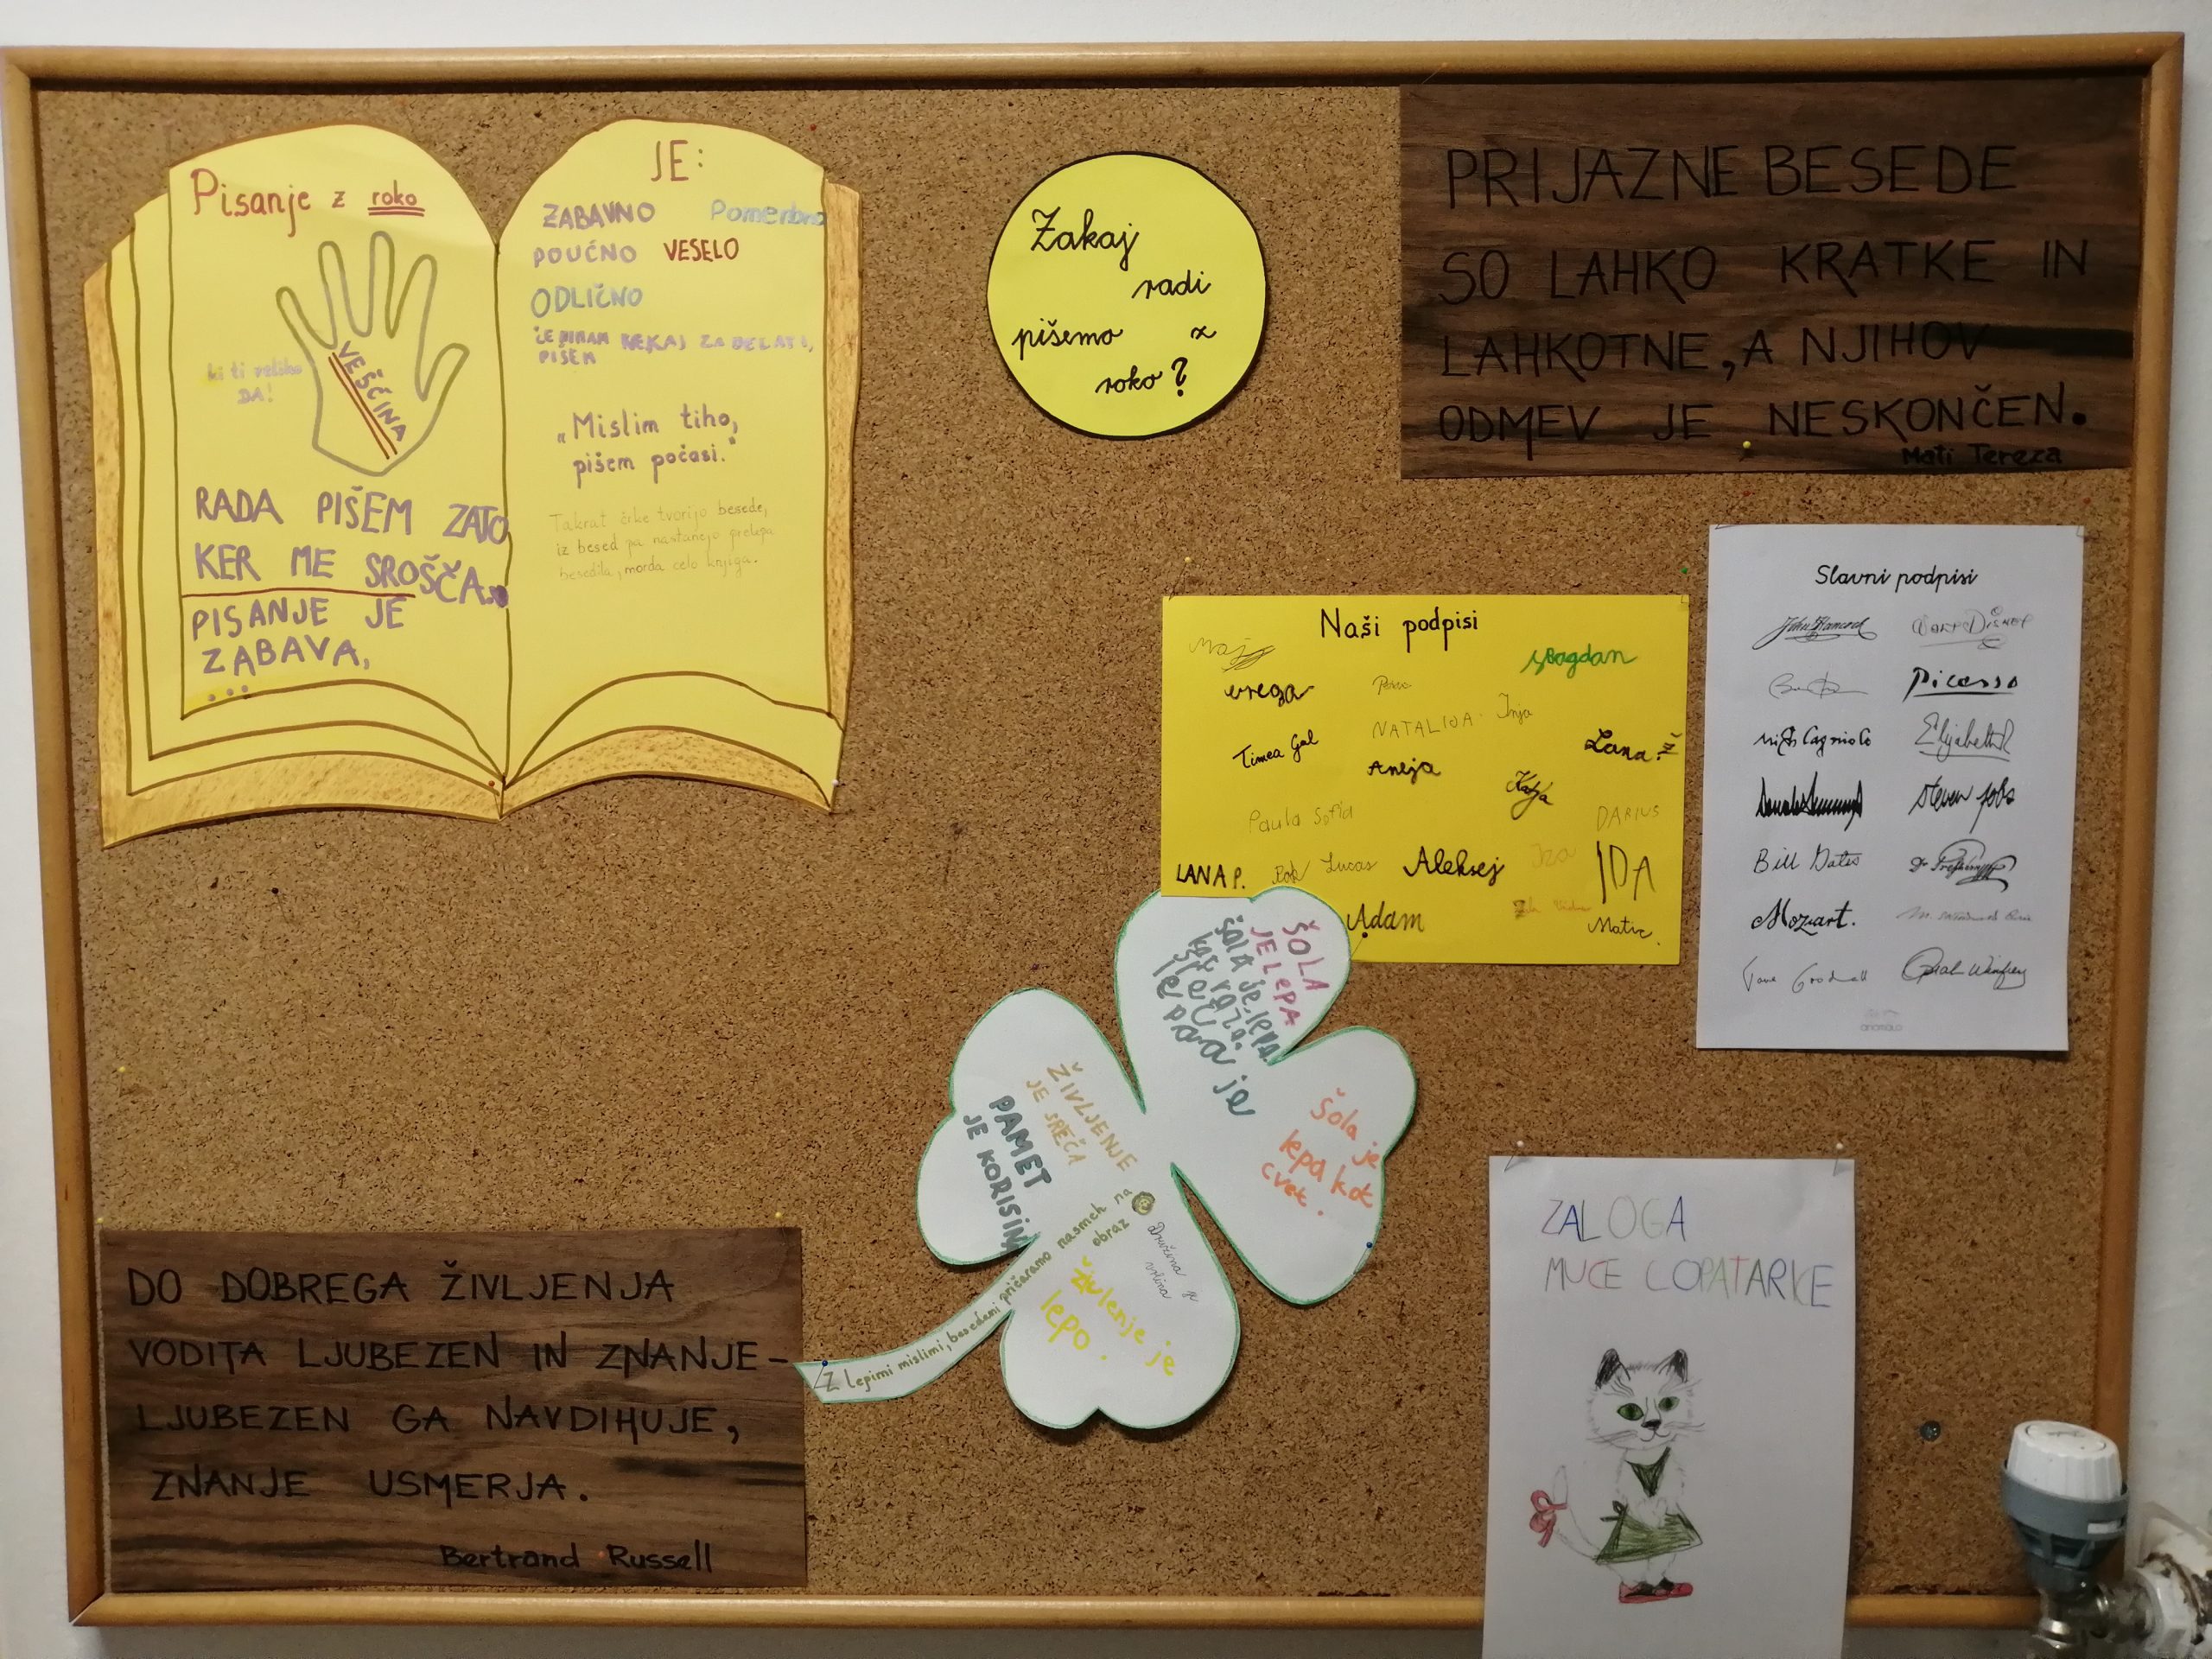 Pisanje z roko
VEŠČINA
ki ti veliko
DA!
RADA PIŠEM ZATO
KER ME SROŠČA..
PISANJE JE
ZABAVA,
...
JE:
ZABAVNO Pomembno
POUČNO VESELO
ODLIČNO
PIŠEM
„Mislim tiho,
pišem počasi."
Takrat črke tvorijo besede,
iz besed pa nastanejo prelepa
besedila, morda celo knjiga.
Zakaj
radi
pišemo z
roko?
PRIJAZNE BESEDE
SO LAHKO KRATKE IN
LAHKOTNE, A NJIHOV
ODMEV JE NESKONČEN.
Mati Tereza
Naši podpisi
Bogdan
NATALIJA Inja
Timea Gal
Lana Ž
Aneja
Katja
Paula Sofia
DARIUS
LANA P. Rok Lucas Aleksej Iza IDA
Adam
Matic
Slavni podpisi
John Hancock
Walt Disney
Picasso
Elizabeth R
Steven Jobs
Bill Gates
Mozart.
Oprah Winfrey
ŠOLA
JE LEPA
ŠOLA JE LEPA.
Šola je
lepa kot
cvet.
ŽIVLJENJE
JE SREČA
PAMET
JE KORISTNA
Z lepimi mislimi, besedami pričaramo nasmeh na
obraz
Družina
je
vrlina
življenje je
lepo.
ZALOGA
MUCE COPATARKE
DO DOBREGA ŽIVLJENJA
VODITA LJUBEZEN IN ZNANJE-
LJUBEZEN GA NAVDIHUJE,
ZNANJE USMERJA.
Bertrand Russell